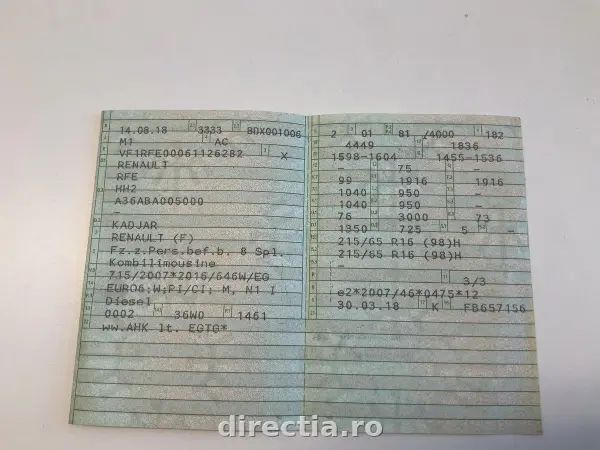 14.08.18 3333 BDX001006
M1 AC
VF1RFE00061126282 X
RENAULT
RFE
HH2
A36ABA005000
–
KADJAR
RENAULT (F)
Fz.z.Pers.bef.b. 8 Spl.
Kombilimousine
715/2007*2016/646W/EG
EURO6;W;PI/CI; M, N1 I
Diesel
0002 36W0 1461
ww.AHK lt. EGTG*
2 01 81 /4000 182
4449 1836
1598-1604 1455-1536
– 75 –
99 1916 1916
1040 950 –
1040 950 –
76 3000 73
1350 725 5 –
215/65 R16 (98)H
215/65 R16 (98)H
–
3/3
e2*2007/46*0475*12
30.03.18 K FB657156
directia.ro